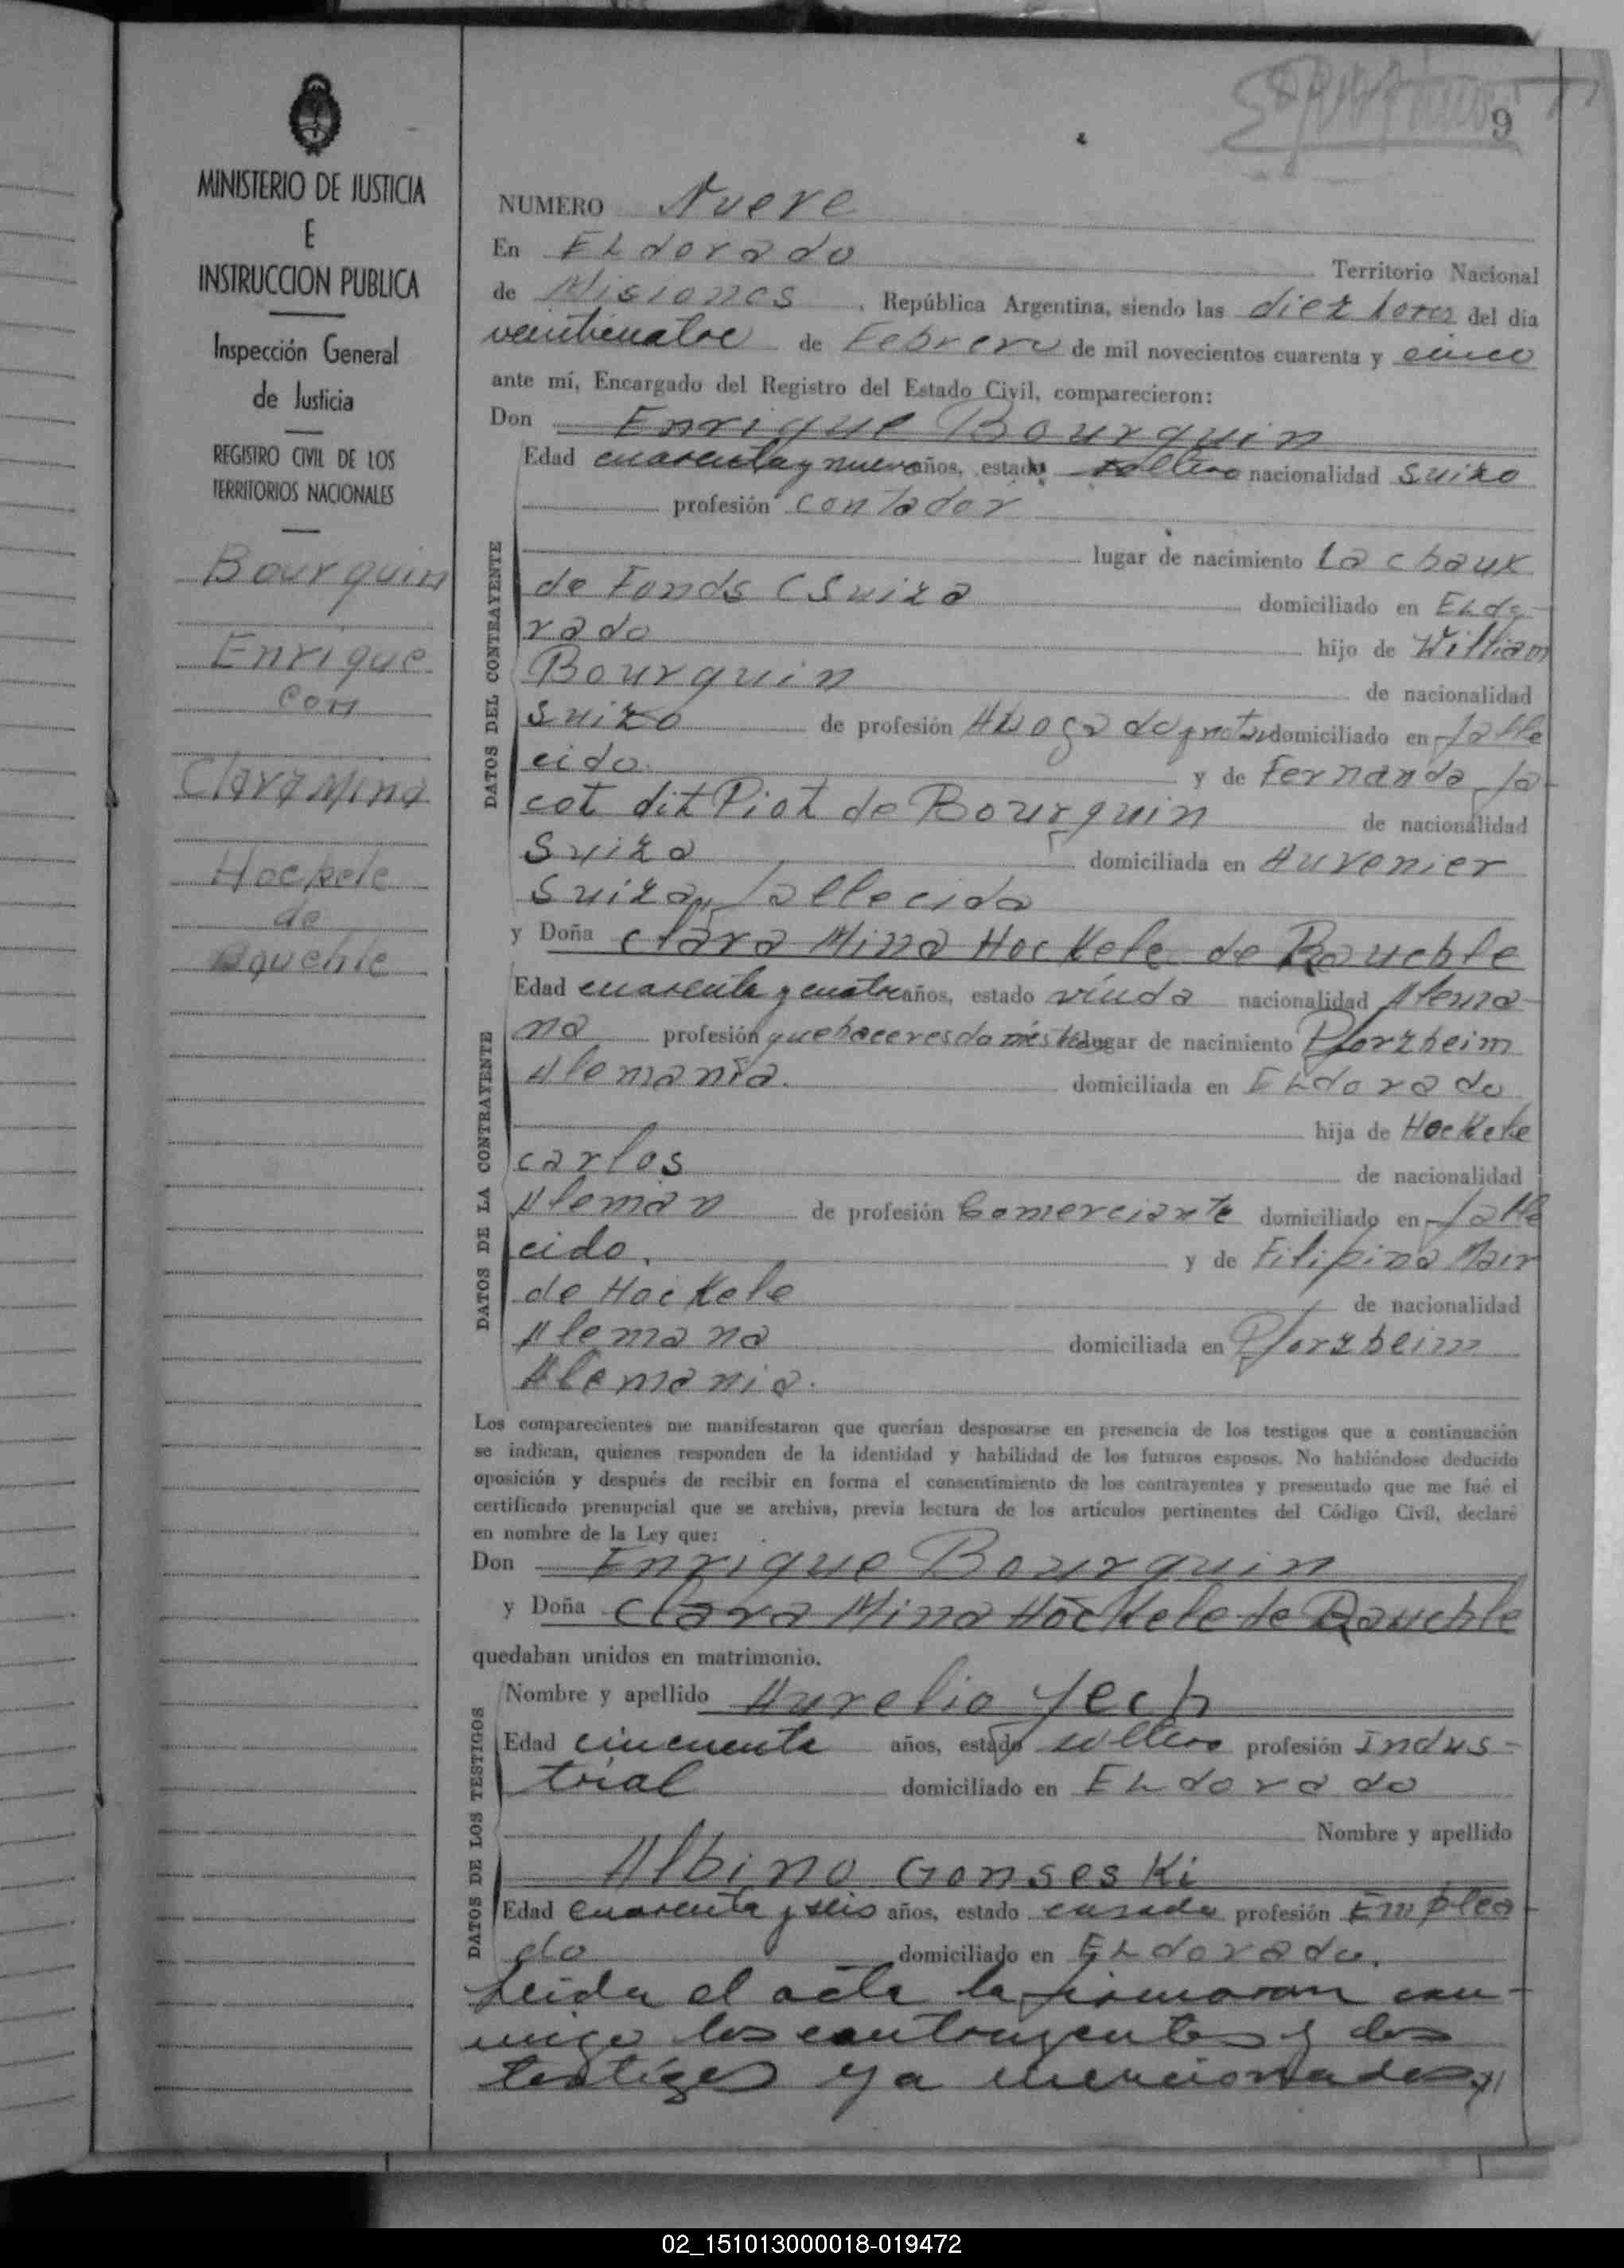 9
MINISTERIO DE JUSTICIA
E
INSTRUCCION PUBLICA
Inspección General
de Justicia
REGISTRO CIVIL DE LOS
TERRITORIOS NACIONALES
Bourquin
Enrique
con
Clara Mina
Hockele
de
NUMERO Nueve
En ELdorado Territorio Nacional
de Misiones, República Argentina, siendo las diez horas del día
veinticuatro de Febrero de mil novecientos cuarenta y cinco
ante mí, Encargado del Registro del Estado Civíl, comparecieron:
Don Enrique Bourquin
Edad cuarenta y nueve años, estado soltero nacionalidad Suizo
profesión contador
DATOS DEL CONTRAYENTE
lugar de nacimiento La chaux
de Fonds (Suiza domiciliado en ELdo-
rado hijo de William
Bourquin de nacionalidad
Suizo de profesión Abogado y domiciliado en falle
cido. y de Fernanda Ja-
cot dit Piot de Bourquin de nacionalidad
Suiza domiciliada en Auvenier
Suiza, fallecida
y Doña Clara Mina Hockele de Rauchle
Edad cuarenta y cuatro años, estado viuda nacionalidad Alema-
na profesión quehaceres domésticos lugar de nacimiento Pforzheim
Alemania. domiciliada en ELdorado
DATOS DE LA CONTRAYENTE
hija de Hockele
carlos de nacionalidad
Aleman de profesión Comerciante domiciliado en falle
cido. y de Filipina Mair
de Hockele de nacionalidad
Alemana domiciliada en Pforzheim
Alemania.
Los comparecientes me manifestaron que querían desposarse en presencia de los testigos que a continuación
se indican, quienes responden de la identidad y habilidad de los futuros esposos. No habiéndose deducido
oposición y después de recibir en forma el consentimiento de los contrayentes y presentado que me fué el
certificado prenupcial que se archiva, previa lectura de los artículos pertinentes del Código Civíl, declaré
en nombre de la Ley que:
Don Enrique Bourquin
y Doña Clara Mina Höckele de Rauchle
quedaban unidos en matrimonio.
DATOS DE LOS TESTIGOS
Nombre y apellido Aurelio Yech
Edad cincuenta años, estado soltero profesión Indus-
trial domiciliado en ELdorado
Nombre y apellido
Albino Gonseski
Edad cuarenta y seis años, estado casado profesión Emplea-
do domiciliado en ELdorado.
Leída el acta la firmaron con-
migo los contrayentes y los
testigos ya mencionados.
02_151013000018-019472